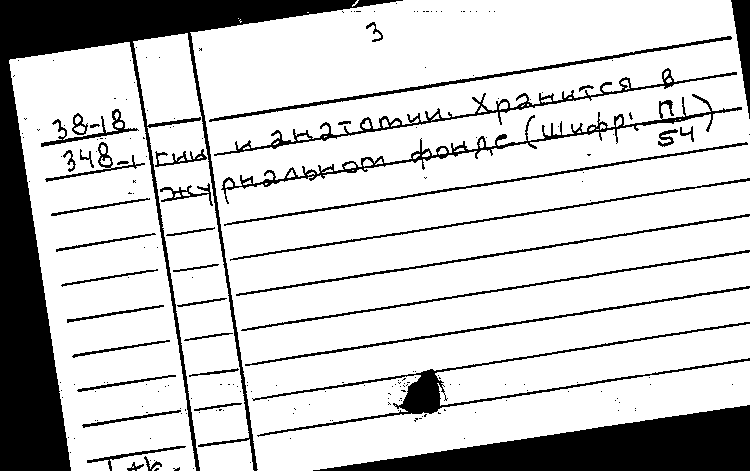 3
38-18
348-1 гии и анатомии. Хранится в
журнальном фонде (Шифр: П1/54)